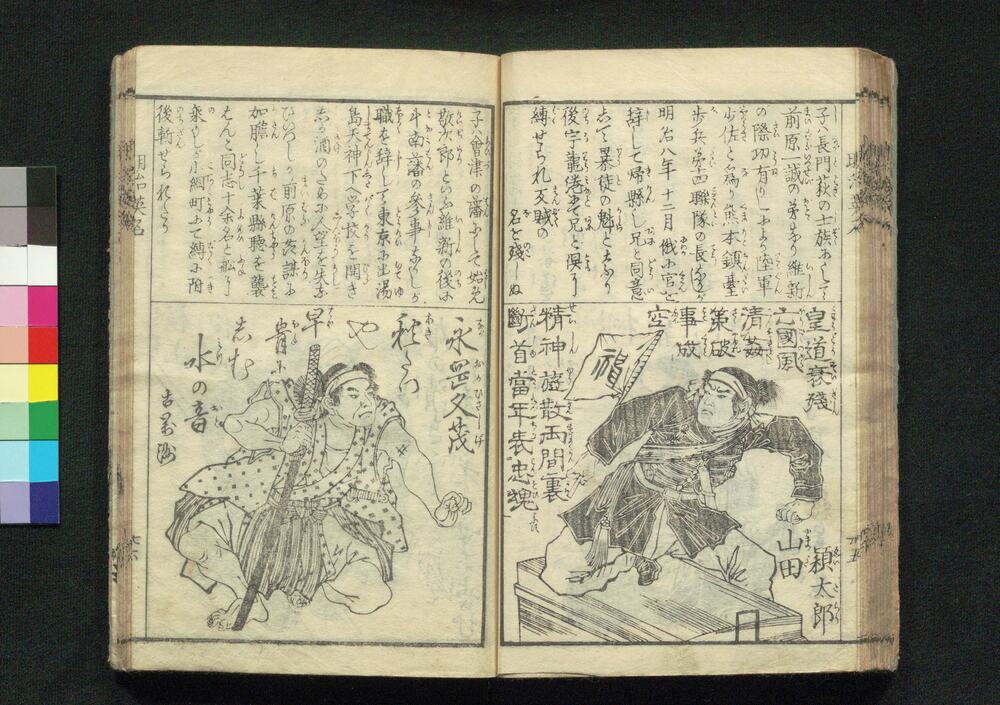 子ハ長門萩の士族にして
前原一誠の弟なり維新
の際功有り一ト度陸軍
少佐と為り熊本鎮臺
歩兵第十四聯隊の長たりしが
明治八年十二月俄に官を
辞して帰縣し兄と同意
して暴徒の魁となり
後宇龍港にて兄と倶に
縛せられ反賊の
名を残しぬ
皇道衰殘
亡國風
清姦
策破
事成
空
精神遊散両間裏
斷首當年表忠魂
山田
穎太郎
子ハ會津の藩にして始め
敬次郎といふ維新の後は
斗南藩の參事たりしが
職を辞して東京に出湯
島天神下へ学校を開き
後斬せられたり
加膽し千葉縣廳を襲
はんと同志十余名と船に
乗りし小網町にて縛に附
永岡久茂
秋たつ
や
早
青に
しむ
水の音
明治英名